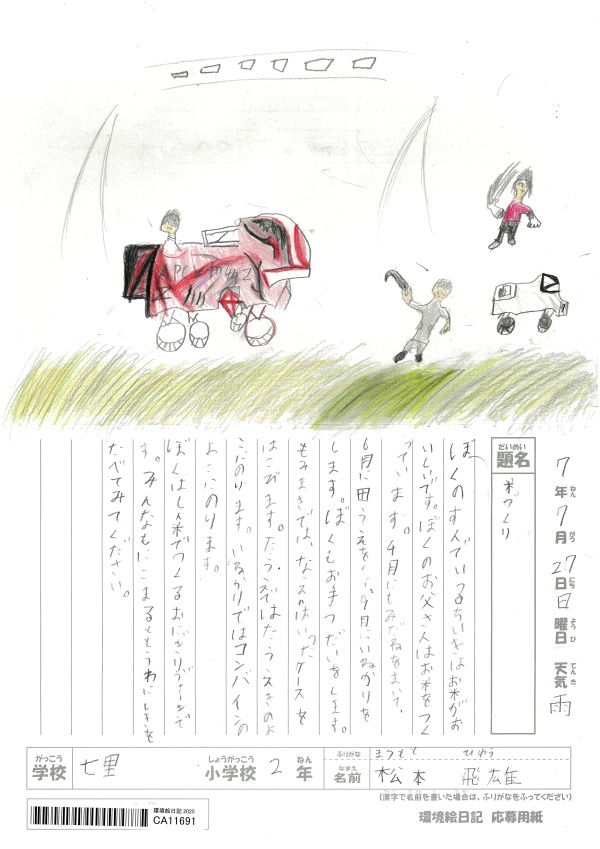 7年7月27日日曜日 天気雨
だいめい
題名
米づくり
ぼくのすんでいるちいきはお米がお
いしいです。ぼくのお父さんはお米をつく
っています。4月にもみだねをまいて、
6月に田うえをし、9月にいねかりを
します。ぼくもお手つだいをします。
もみまきでは、なえのはいったケースを
はこびます。たうえではたうえきのよ
こにのります。いねかりではコンバインの
よこにのります。
ぼくはしん米でつくるおにぎりが
す。みんなも
たべてみてください。
がっこう
学校
七里
しょうがっこう ねん
小学校 2年
ふりがな まつもと ひゆう
なまえ
名前 松本 飛雄
(漢字で名前を書いた場合は、ふりがなをふってください)
環境絵日記 応募用紙
環境絵日記 2025
CA11691